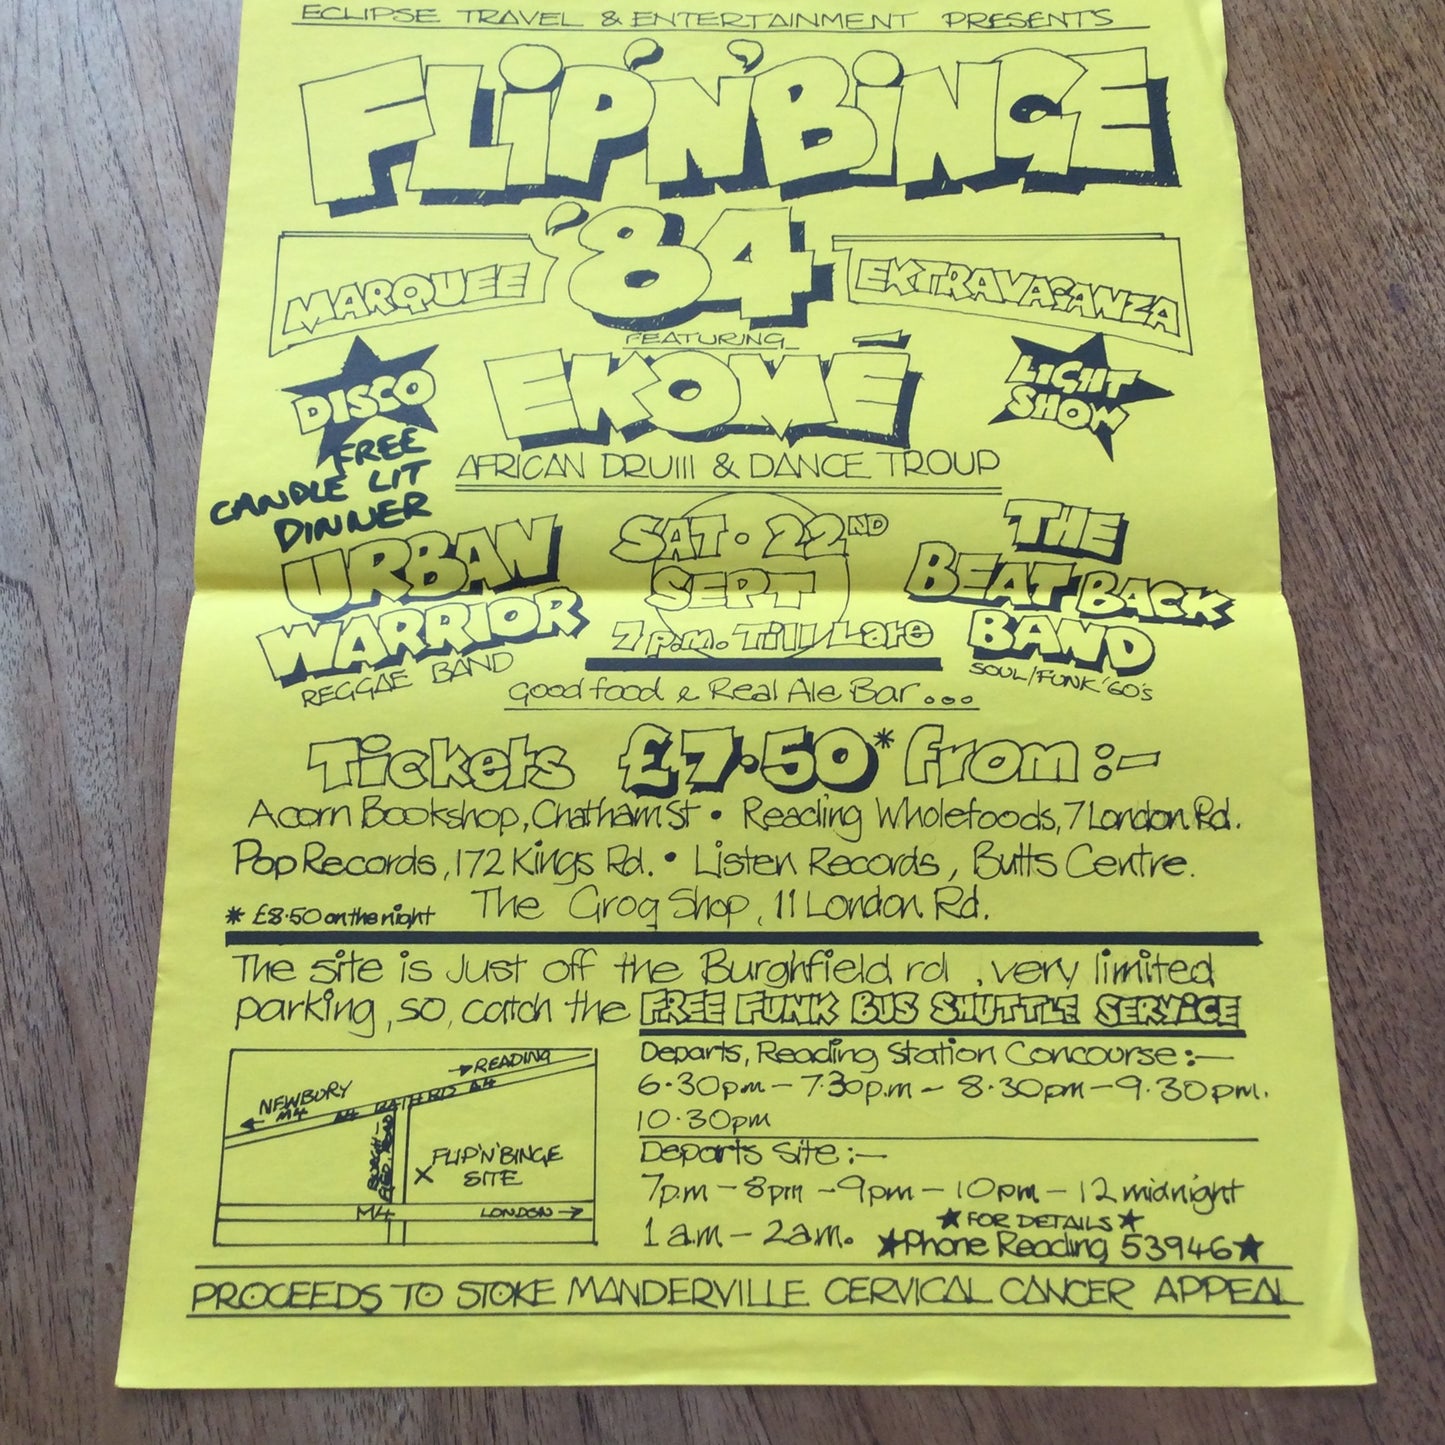 ECLIPSE TRAVEL & ENTERTAINMENT PRESENTS
FLIP'N'BINGE
'84
MARQUEE
EXTRAVAGANZA
FEATURING
EKOMÉ
AFRICAN DRUM & DANCE TROUP
DISCO
LIGHT
SHOW
FREE
CANDLE LIT
DINNER
URBAN
WARRIOR
REGGAE BAND
SAT. 22ND
SEPT
7 p.m. Till Late
THE
BEAT BACK
BAND
SOUL/FUNK '60's
good food & Real Ale Bar...
Tickets £7.50* from:-
Acorn Bookshop, Chatham St • Reading Wholefoods, 7 London Rd.
Pop Records, 172 Kings Rd. • Listen Records, Butts Centre.
* £8.50 on the night The Grog Shop, 11 London Rd.
The site is just off the Burghfield rd, very limited
parking, so, catch the FREE FUNK BUS SHUTTLE SERVICE
→ READING
NEWBURY
← M4
A4 BATH RD A4
BURGH-
FIELD ROAD
X FLIP'N'BINGE
SITE
M4 LONDON →
Departs, Reading Station Concourse:-
6.30pm - 7.30p.m - 8.30pm - 9.30pm.
10.30pm
Departs Site:-
7p.m - 8pm - 9pm - 10pm - 12 midnight
1 a.m - 2am.
★ FOR DETAILS ★
★ Phone Reading 53946 ★
PROCEEDS TO STOKE MANDERVILLE CERVICAL CANCER APPEAL